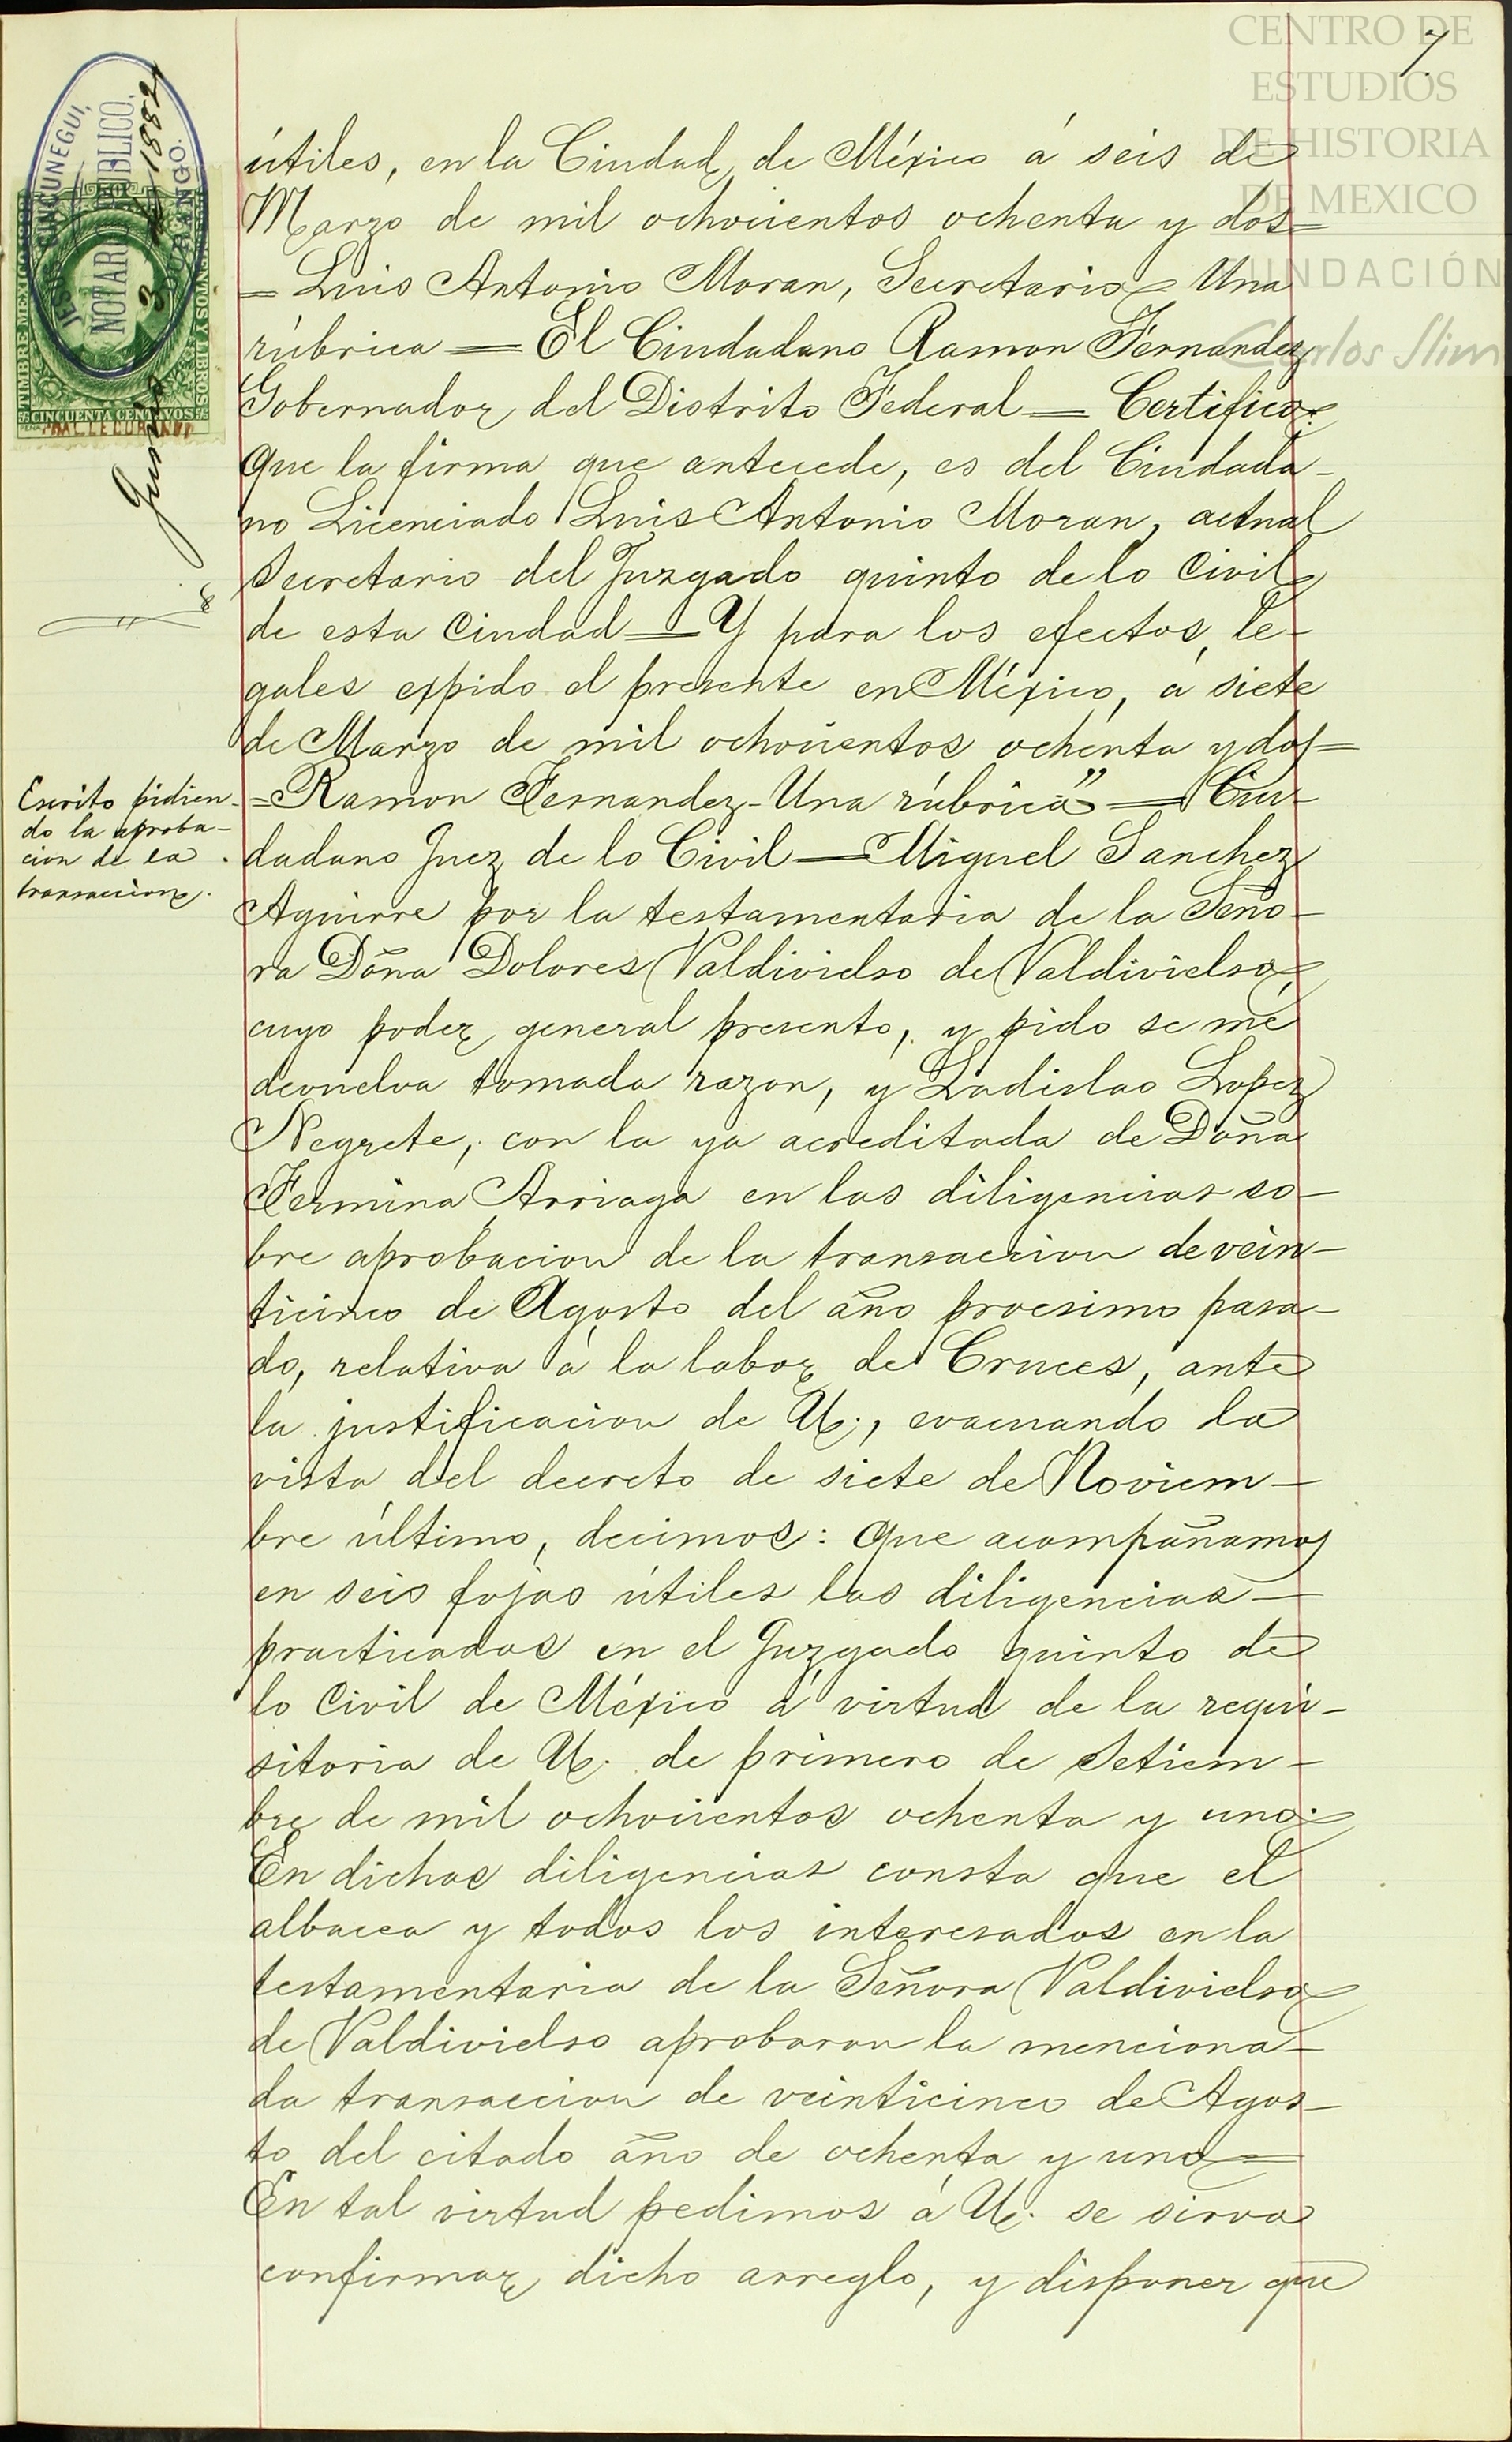 CENTRO DE
ESTUDIOS
DE HISTORIA
DE MEXICO
FUNDACIÓN
Carlos Slim
7
JESUS CINCUNEGUI,
NOTARIO PUBLICO.
DURANGO.
TIMBRE MEXICO
DOCUMENTOS Y LIBROS
CINCUENTA CENTAVOS
Junio 3 de 1882
útiles, en la Ciudad de México á seis de
Marzo de mil ochocientos ochenta y dos=
=Luis Antonio Moran, Secretario= Una
rúbrica = El Ciudadano Ramon Fernandez
Gobernador del Distrito Federal = Certifico:
Que la firma que antecede, es del Ciudada-
no Licenciado Luis Antonio Moran, actual
Secretario del Juzgado quinto de lo Civil
de esta Ciudad = Y para los efectos le-
gales expido el presente en México, á siete
de Marzo de mil ochocientos ochenta y dos=
Escrito pidien-
do la aproba-
cion de la
transaccion.
=Ramon Fernandez-Una rúbrica" = Ciu-
dadano Juez de lo Civil = Miguel Sanchez
Aguirre por la testamentaria de la Seño-
ra Doña Dolores Valdivielso de Valdivielso,
cuyo poder general presento, y pido se me
devuelva tomada razon, y Ladislao Lopez
Negrete, con la ya acreditada de Doña
Fermina Arriaga en las diligencias so-
bre aprobacion de la transaccion de vein-
ticinco de Agosto del año procsimo pasa-
do, relativa á la labor de Cruces, ante
la justificacion de U., evacuando la
vista del decreto de siete de Noviem-
bre último, decimos: Que acompañamos
en seis fojas útiles las diligencias-
practicadas en el Juzgado quinto de
lo Civil de México á virtud de la requi-
sitoria de U. de primero de Setiem-
bre de mil ochocientos ochenta y uno=
En dichas diligencias consta que el
albacea y todos los interesados en la
testamentaria de la Señora Valdivielso
de Valdivielso aprobaron la menciona-
da transaccion de veinticinco de Agos-
to del citado año de ochenta y uno=
En tal virtud pedimos á U. se sirva
confirmar dicho arreglo, y disponer que